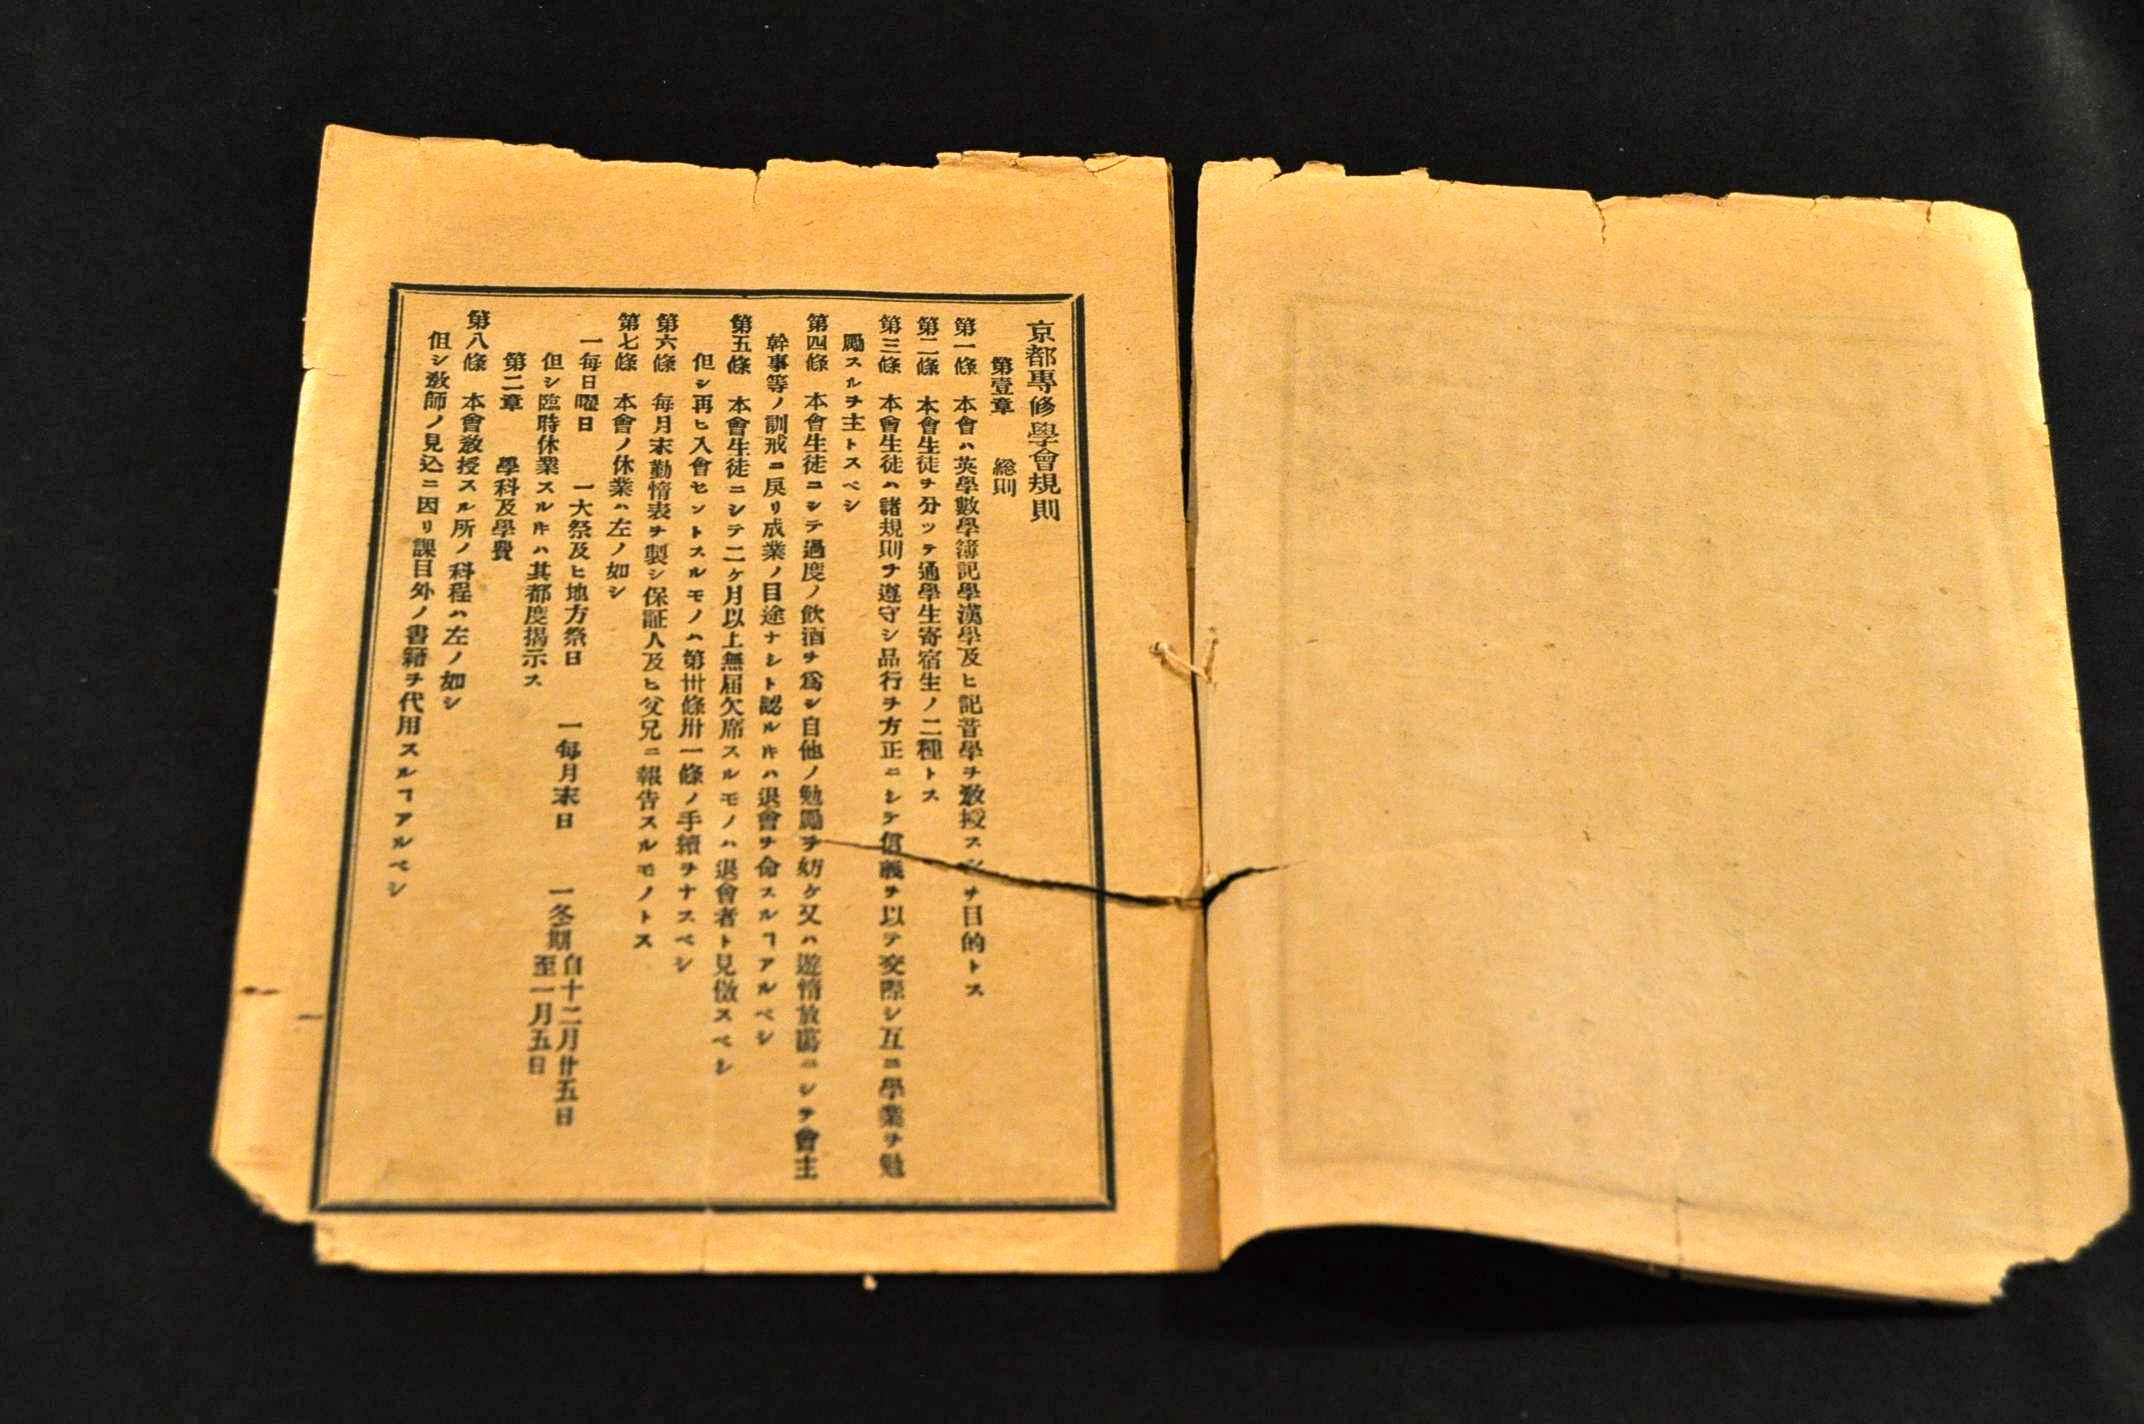 京都專修學會規則
第壹章　総則
第一條　本會ハ英學數學簿記學漢學及ヒ記音學ヲ敎授スルヲ目的トス
第二條　本會生徒ヲ分ッテ通學生寄宿生ノ二種トス
第三條　本會生徒ハ諸規則ヲ遵守シ品行ヲ方正ニシテ信義ヲ以テ交際シ互ニ學業ヲ勉
勵スルヲ主トスベシ
第四條　本會生徒ニシテ過度ノ飮酒ヲ爲シ自他ノ勉勵ヲ妨ケ又ハ遊惰放蕩ニシテ會主
幹事等ノ訓戒ニ戾リ成業ノ目途ナシト認ルㇳキハ退會ヲ命スルヿアルベシ
第五條　本會生徒ニシテ二ケ月以上無届欠席スルモノハ退會者ト見傚スベシ
但シ再ヒ入會セントスルモノハ第卅條卅一條ノ手續ヲナスベシ
第六條　每月末勤惰表ヲ製シ保証人及ヒ父兄ニ報告スルモノトス
第七條　本會ノ休業ハ左ノ如シ
一每日曜日　一大祭及ヒ地方祭日　一每月末日　一冬期自十二月廿五日至一月五日
但シ臨時休業スルㇳキハ其都度揭示ス
第二章　學科及學費
第八條　本會敎授スル所ノ科程ハ左ノ如シ
但シ敎師ノ見込ニ因リ課目外ノ書籍ヲ代用スルヿアルベシ
一